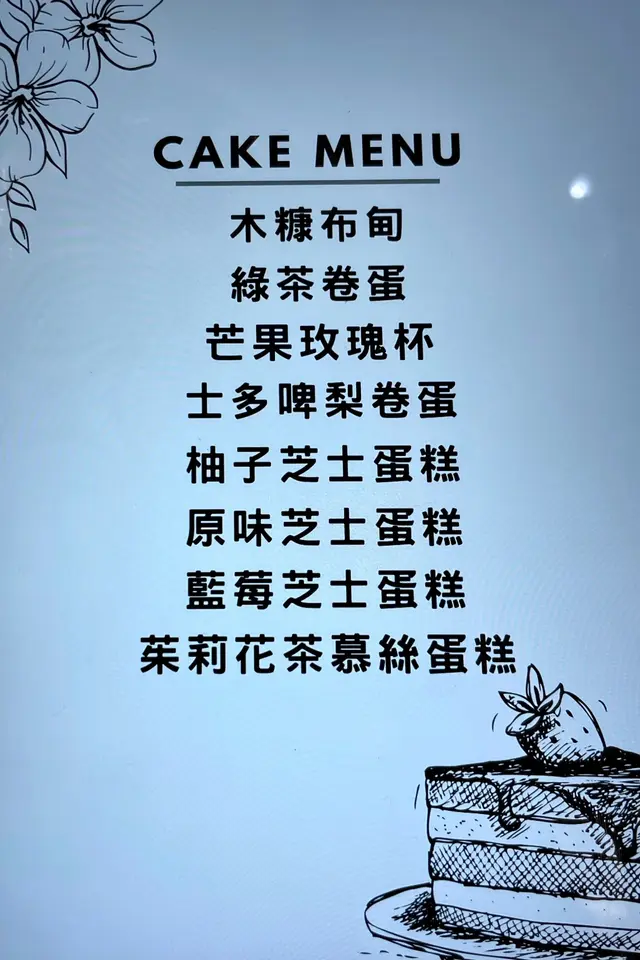 CAKE MENU
木糠布甸
綠茶卷蛋
芒果玫瑰杯
士多啤梨卷蛋
柚子芝士蛋糕
原味芝士蛋糕
藍莓芝士蛋糕
茱莉花茶慕絲蛋糕